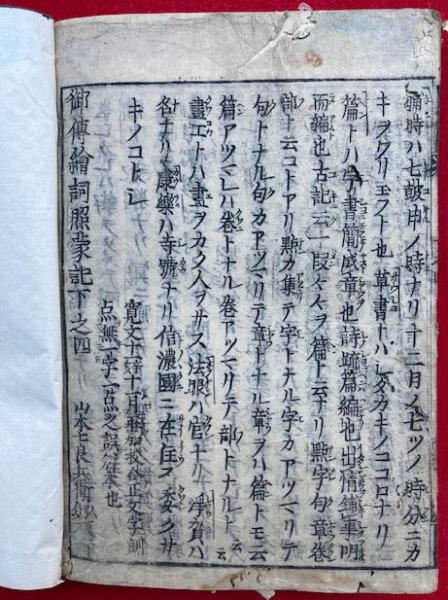 晡時ハ七皷申ノ時ナリ十二月ノ七ツノ時分ニカ
キヲクリ玉フト也草書トハシタカキノココロナリ
篇トハ字書簡成章也詩疏篇編也出情鋪事明
而編也古記云一段々々ヲ篇ト云ナリ點字句章巻
部ト云コトアリ點カ集テ字トナル字カアツマリテ
句トナル句カアツマリテ章トナル章ヲハ篇トモ云
篇アツマレハ巻トナル巻アツマリテ部トナルト云云
畫工トハ畫ヲカク人ヲサス法眼ハ官ナリ淨賀ハ
名ナリ康樂ハ寺號ナリ信濃國ニ在住ス委クサ
キノコトシ
寛文十 十月 加校合正文字訓
点無一字一点之誤 本也
御傳繪詞照蒙記下之四 山本七良兵衛